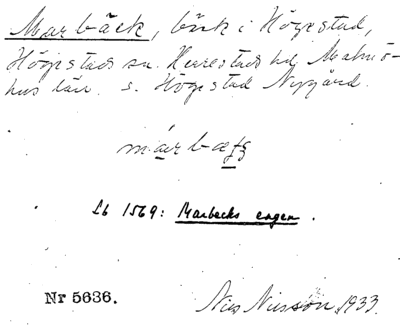 Marbäck, bäck i Högestad,
Högestads sn. Herrestads hd. Malmö-
hus län. s. Högestad Nygård.
márbæ
Lb 1569: Marbecks engen.
Nr 5636.
Nils Nilsson, 1933.